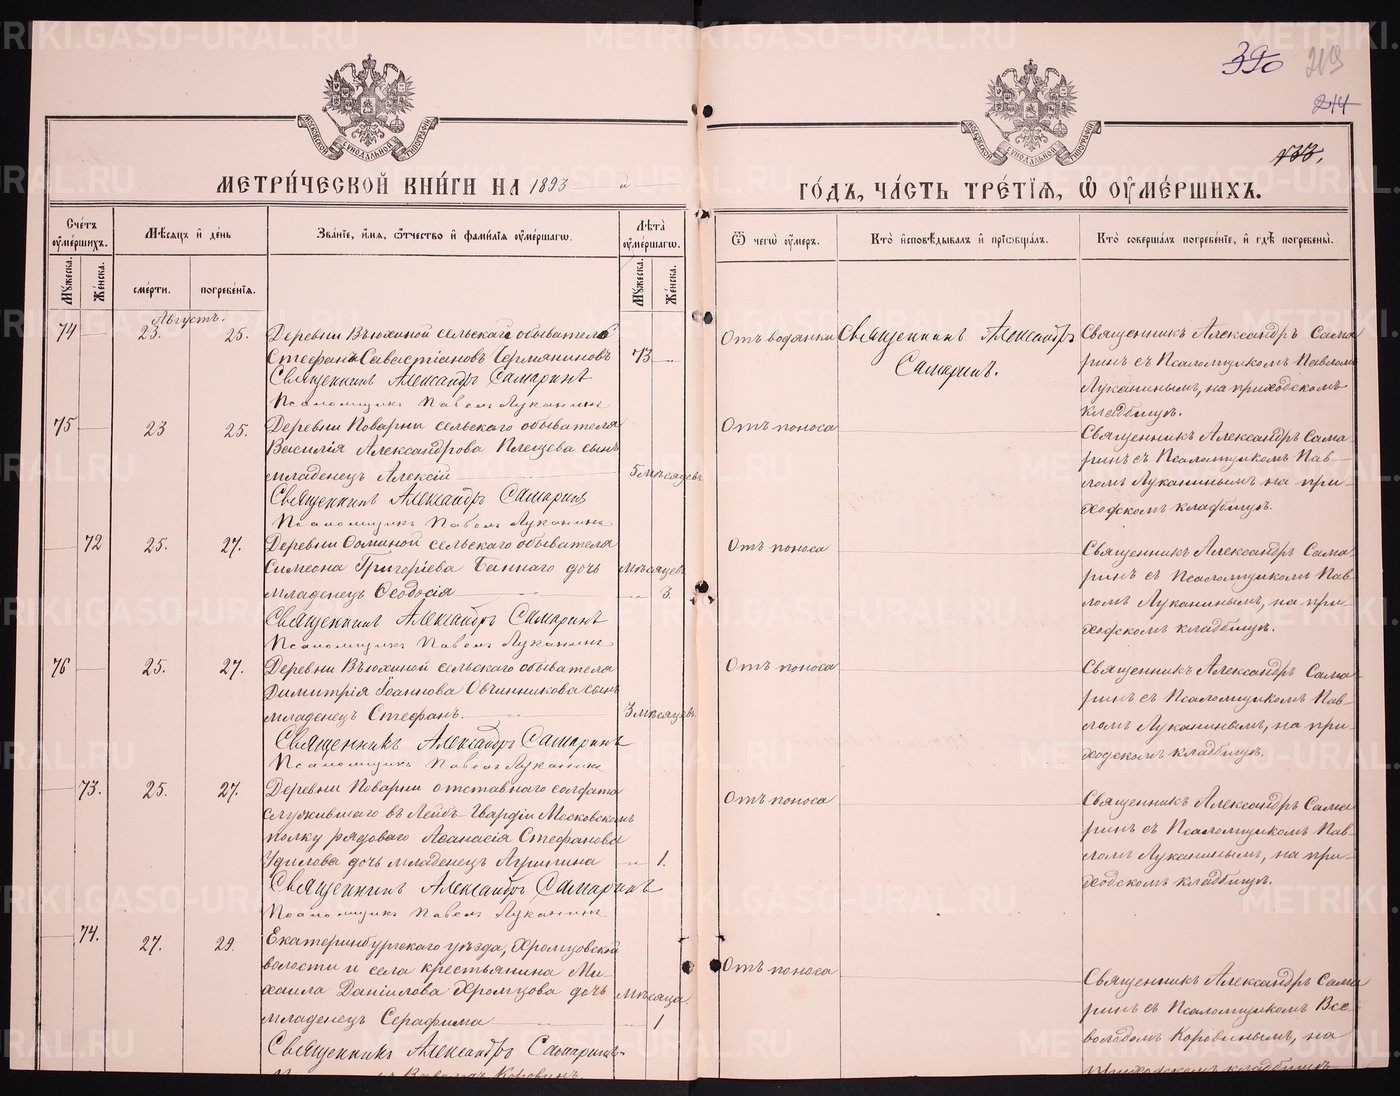 390 219
214
133.
МОСКОВСКОЙ СѴНОДАЛЬНОЙ ТИПОГРАФІИ
МОСКОВСКОЙ СѴНОДАЛЬНОЙ ТИПОГРАФІИ
МЕТРИ́ЧЕСКОЙ КНИ́ГИ НА 1893 й
ГО́ДЪ, ЧА́СТЬ ТРЕ́ТІѦ, Ѿ ОУМЕ́РШИХЪ.
Сче́тъ оуме́ршихъ.
Мѣ́сяцъ и де́нь
Зва́ніе, и́мя, ѻ́тчество и фами́лія оуме́ршагѡ.
Лѣ́та оуме́ршагѡ.
Ѿ чегѡ̀ оу́меръ.
Кто̀ исповѣ́дывалъ и пріобща́лъ.
Кто̀ соверша́лъ погребе́ніе, и гдѣ̀ погребены̀.
Мꙋ́жеска.
Же́нска.
сме́рти.
погребе́нія.
Мꙋ́жеска.
Же́нска.
Августъ.
74 23. 25. Деревни Вьюхиной сельскаго обывателя
Стефанъ Савастіановъ Чермяниновъ 73
Священникъ Александръ Самаринъ
Псаломщикъ Павелъ Луканинъ
Отъ водянки
Священникъ Александръ
Самаринъ.
Священникъ Александръ Сама
ринъ съ Псаломщикомъ Павломъ
Луканинымъ, на приходскомъ
кладбищѣ.
75 23 25. Деревни Поварни сельскаго обывателя
Василія Александрова Плещева сынъ
младенецъ Алексій 5 мѣсяцевъ
Священникъ Александръ Самаринъ
Псаломщикъ Павелъ Луканинъ
Отъ поноса
Священникъ Александръ Сама-
ринъ съ Псаломщикомъ Пав-
ломъ Луканинымъ на при-
ходскомъ кладбищѣ.
72 25. 27. Деревни Фоминой сельскаго обывателя
Симеона Григоріева Баннаго дочь мѣсяцевъ
младенецъ Ѳеодосія 3.
Священникъ Александръ Самаринъ
Псаломщикъ Павелъ Луканинъ
Отъ поноса
Священникъ Александръ Сама
ринъ съ Псаломщикомъ Пав-
ломъ Луканинымъ, на при-
ходскомъ кладбищѣ.
76 25. 27. Деревни Вьюхиной сельскаго обывателя
Димитрія Іоаннова Овчинникова сынъ
младенецъ Стефанъ. 3 мѣсяцевъ.
Священникъ Александръ Самаринъ
Псаломщикъ Павелъ Луканинъ
Отъ поноса
Священникъ Александръ Сама
ринъ съ Псаломщикомъ Пав-
ломъ Луканинымъ, на при-
ходскомъ кладбищѣ.
73. 25. 27. Деревни Поварни отставнаго солдата
служившаго въ Лейбъ Гвардіи Московскомъ
полку рядоваго Аѳанасія Стефанова
Удилова дочь младенецъ Агриппина 1.
Священникъ Александръ Самаринъ
Псаломщикъ Павелъ Луканинъ
Отъ поноса
Священникъ Александръ Сама
ринъ съ Псаломщикомъ Пав-
ломъ Луканинымъ, на при-
ходскомъ кладбищѣ.
74. 27. 29. Екатеринбургскаго уѣзда, Хромцовской
волости и села крестьянина Ми-
хаила Даніилова Хромцова дочь мѣсяца.
младенецъ Серафима 1
Священникъ Александръ Самаринъ
Отъ поноса
Священникъ Александръ Сама
ринъ съ Псаломщикомъ Все-
володомъ Коровинымъ, на
приходскомъ кладбищѣ
METRIKI.GASO-URAL.RU